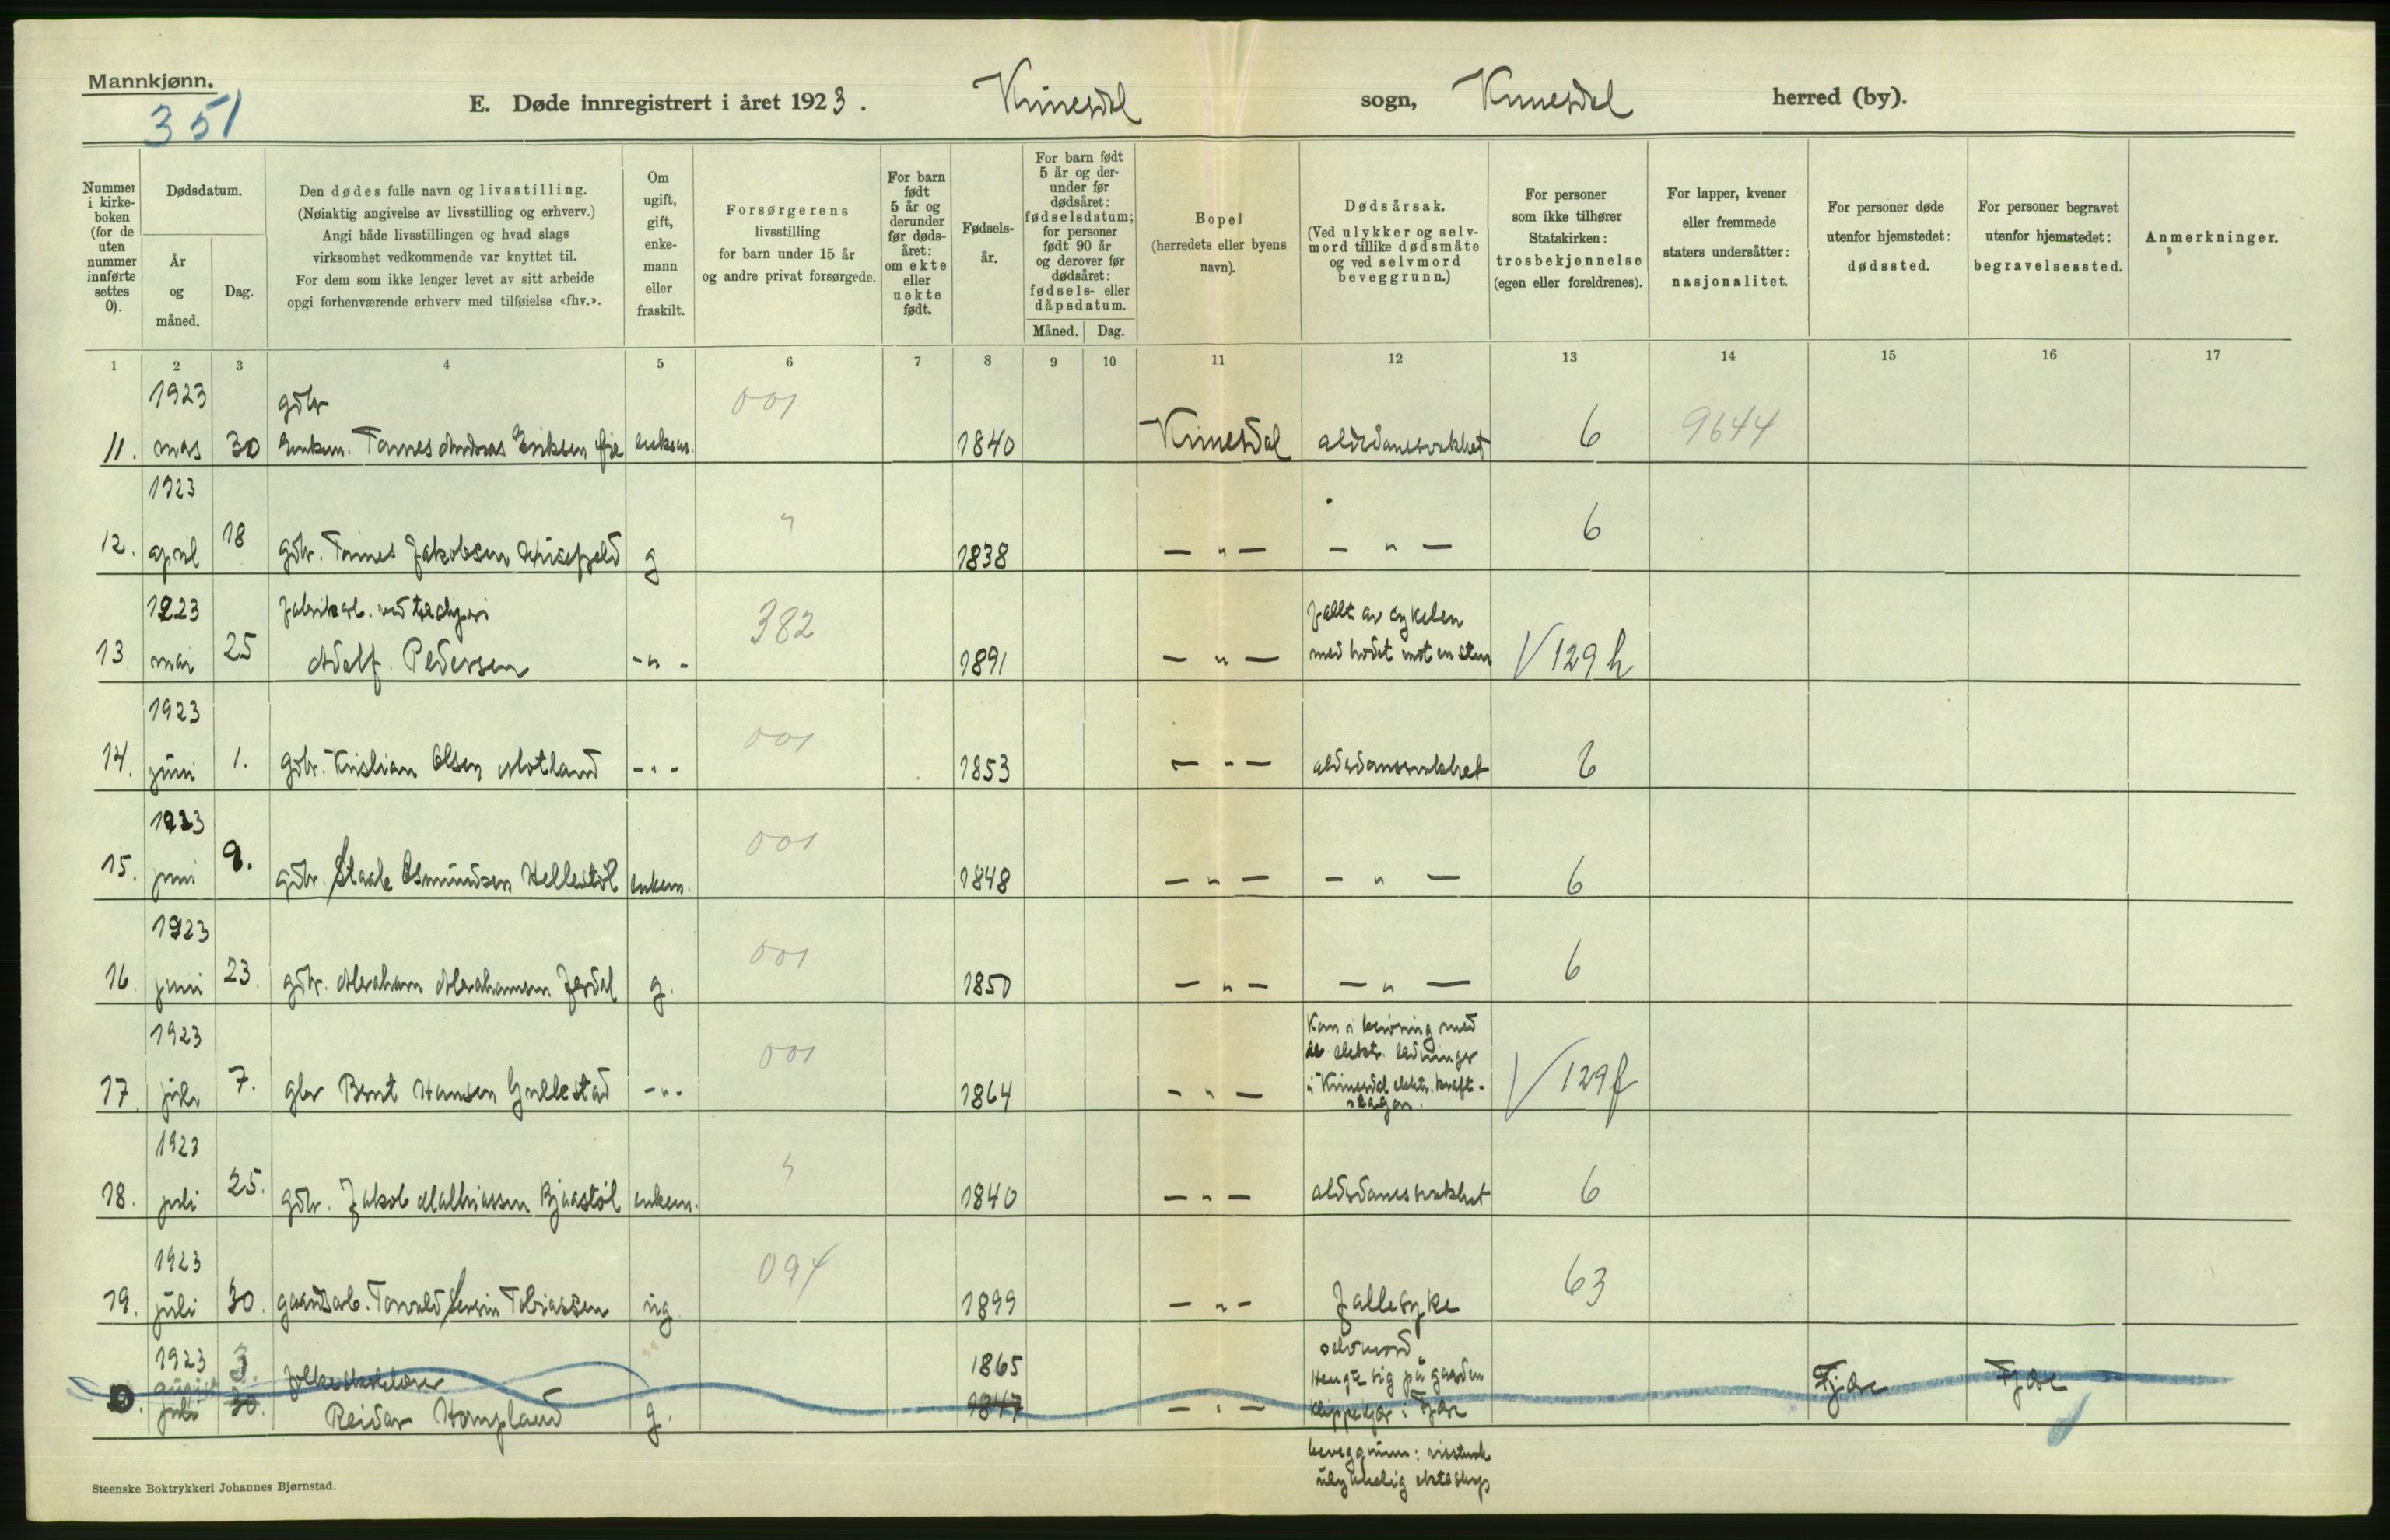 Mannkjønn.
351
E. Døde innregistrert i året 1923. Kvinesdal sogn, Kvinesdal herred (by).
Nummer i kirkeboken (for de uten nummer innførte settes 0).
Dødsdatum.
År og måned.
Dag.
Den dødes fulle navn og livsstilling.
(Nøiaktig angivelse av livsstilling og erhverv.)
Angi både livsstillingen og hvad slags
virksomhet vedkommende var knyttet til.
For dem som ikke lenger levet av sitt arbeide
opgi forhenværende erhverv med tilføielse «fhv.».
Om ugift, gift, enkemann eller fraskilt.
Forsørgerens livsstilling
for barn under 15 år
og andre privat forsørgede.
For barn født 5 år og derunder før dødsåret: om ekte eller uekte født.
Fødselsår.
For barn født 5 år og derunder før dødsåret: fødselsdatum; for personer født 90 år og derover før dødsåret: fødsels- eller dåpsdatum.
Måned. Dag.
Bopel
(herredets eller byens navn).
Dødsårsak.
(Ved ulykker og selvmord tillike dødsmåte og ved selvmord beveggrunn.)
For personer som ikke tilhører Statskirken: trosbekjennelse (egen eller foreldrenes).
For lapper, kvener eller fremmede staters undersåtter: nasjonalitet.
For personer døde utenfor hjemstedet: dødssted.
For personer begravet utenfor hjemstedet: begravelsessted.
Anmerkninger.
1 2 3 4 5 6 7 8 9 10 11 12 13 14 15 16 17
1923 gdbr 001
11. mars 30 Enkem. Tønnes Andreas Eriksen Øie enkem. 1840 Kvinesdal alderdomssvakhet 6 9644
1923
12. april 18 gdbr. Tønnes Jakobsen g 〃 1838 — " — — " — 6
1923 fabrikarb. ved 382 falt av cykelen
13 mai 25 Adolf Pedersen - " - 1891 — " — med hodet mot en sten V 129 h
1923 001
14. juni 1. gdbr. Kristian Olsen Motland - " - 1853 — " — alderdomssvakhet 6
1923 001
15. juni 9. gdbr. Staale Osmundsen Hellestøl enkem. 1848 — " — — " — 6
1923 001
16. juni 23. gdbr. Abraham Abrahamsen Jerdal g. 1850 — " — — " — 6
1923 001 Kom i berøring med
de elektr. ledninger
17. juli 7. gbr Bernt Hansen Gullestad - " - 1864 — " — i Kvinesdal elektr. kraft- V 129 f
1923
18. juli 25. gdbr. Jakob Mathiassen Bjaastøl enkem. 〃 1840 — " — alderdomssvakhet 6
1923 094
19. juli 30. gaardsarb. Torvald Severin Tobiassen ug 1899 — " — Fallesyke 63
1923 3. folkeskolelærer 1865 selvmord
august Hengte sig på gaarden
0. juli 30. Reidar Hompland g. 1847 — " — i Fjære Fjære Fjære
beveggrunn:
ulykkelig ekteskap
Steenske Boktrykkeri Johannes Bjørnstad.